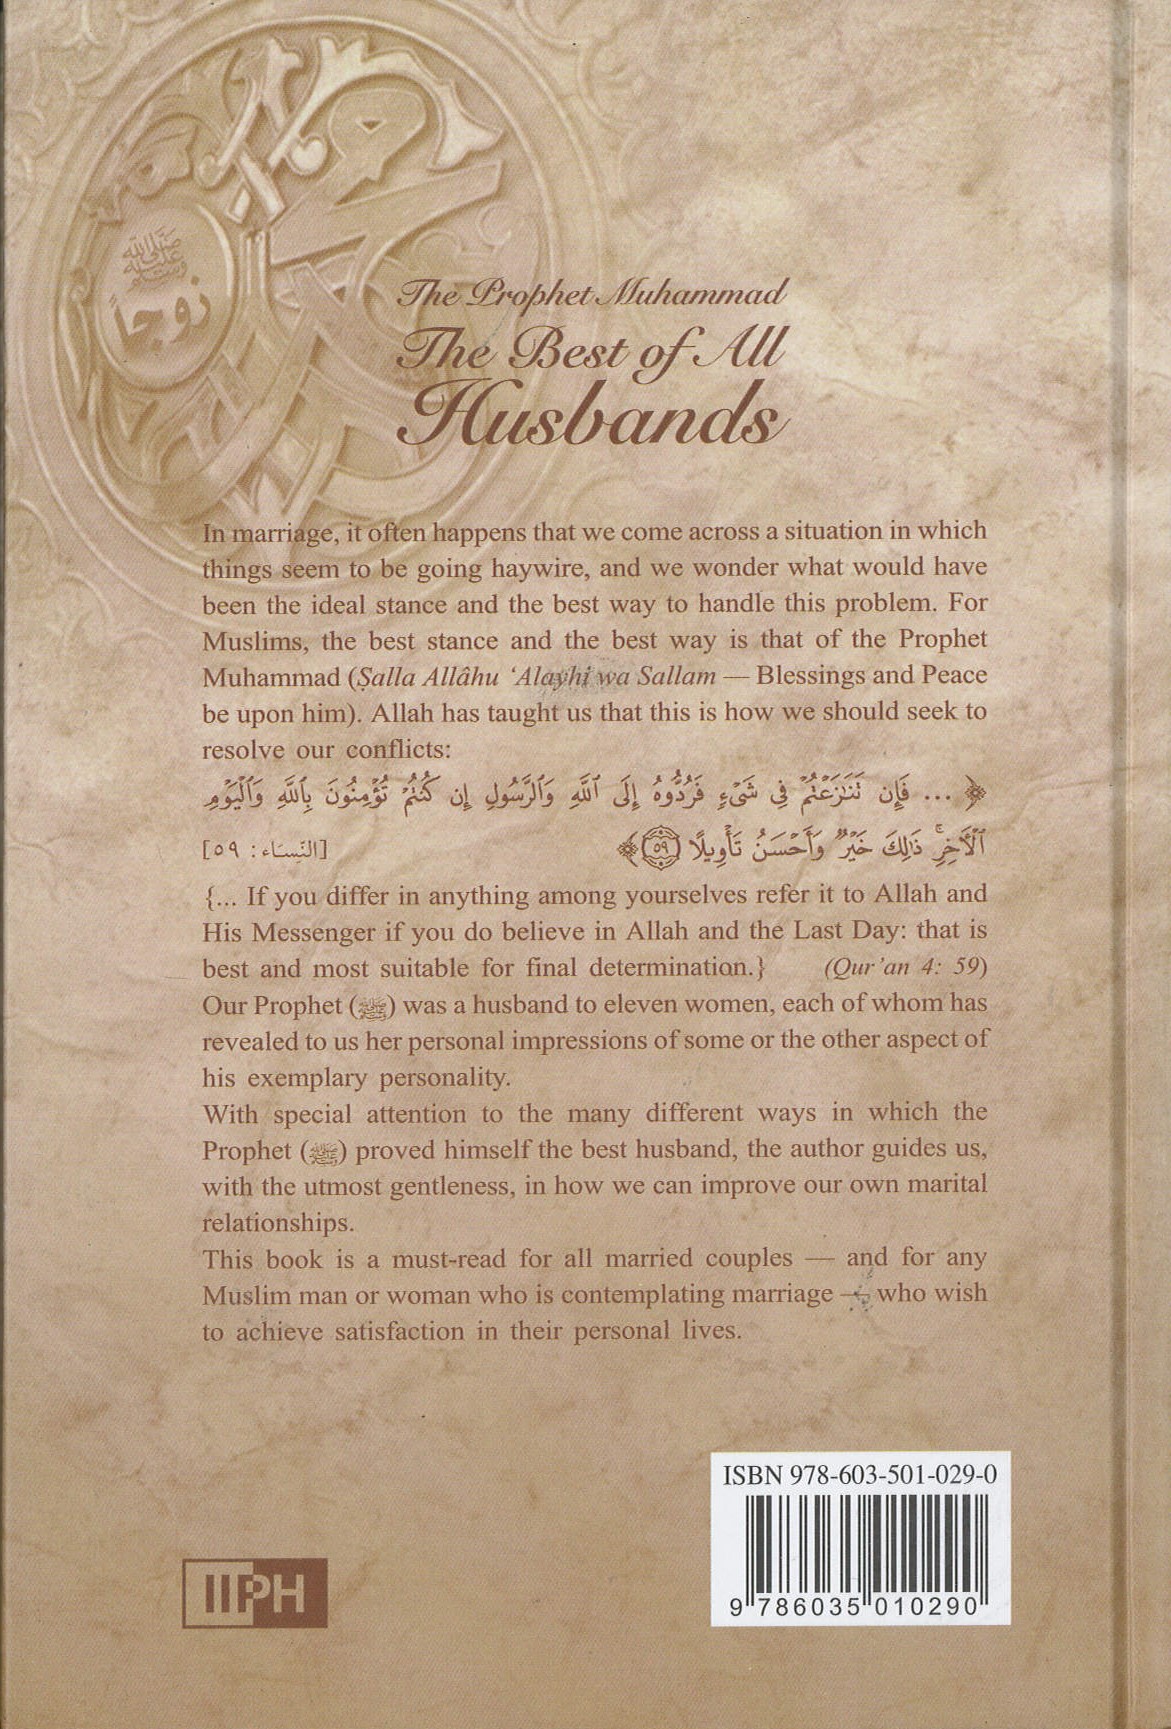 ﷺ
زوجاً
The Prophet Muhammad
The Best of All
Husbands
In marriage, it often happens that we come across a situation in which
things seem to be going haywire, and we wonder what would have
been the ideal stance and the best way to handle this problem. For
Muslims, the best stance and the best way is that of the Prophet
Muhammad (Ṣalla Allâhu ‘Alayhi wa Sallam — Blessings and Peace
be upon him). Allah has taught us that this is how we should seek to
resolve our conflicts:
﴿ ... فَإِن تَنَـٰزَعْتُمْ فِى شَىْءٍ فَرُدُّوهُ إِلَى ٱللَّهِ وَٱلرَّسُولِ إِن كُنتُمْ تُؤْمِنُونَ بِٱللَّهِ وَٱلْيَوْمِ
ٱلْـَٔاخِرِ ۚ ذَٰلِكَ خَيْرٌ وَأَحْسَنُ تَأْوِيلًا ٥٩﴾ [النّسَاء: ٥٩]
{... If you differ in anything among yourselves refer it to Allah and
His Messenger if you do believe in Allah and the Last Day: that is
best and most suitable for final determination.} (Qur’an 4: 59)
Our Prophet (ﷺ) was a husband to eleven women, each of whom has
revealed to us her personal impressions of some or the other aspect of
his exemplary personality.
With special attention to the many different ways in which the
Prophet (ﷺ) proved himself the best husband, the author guides us,
with the utmost gentleness, in how we can improve our own marital
relationships.
This book is a must-read for all married couples — and for any
Muslim man or woman who is contemplating marriage — who wish
to achieve satisfaction in their personal lives.
ISBN 978-603-501-029-0
9 786035 010290
IIPH